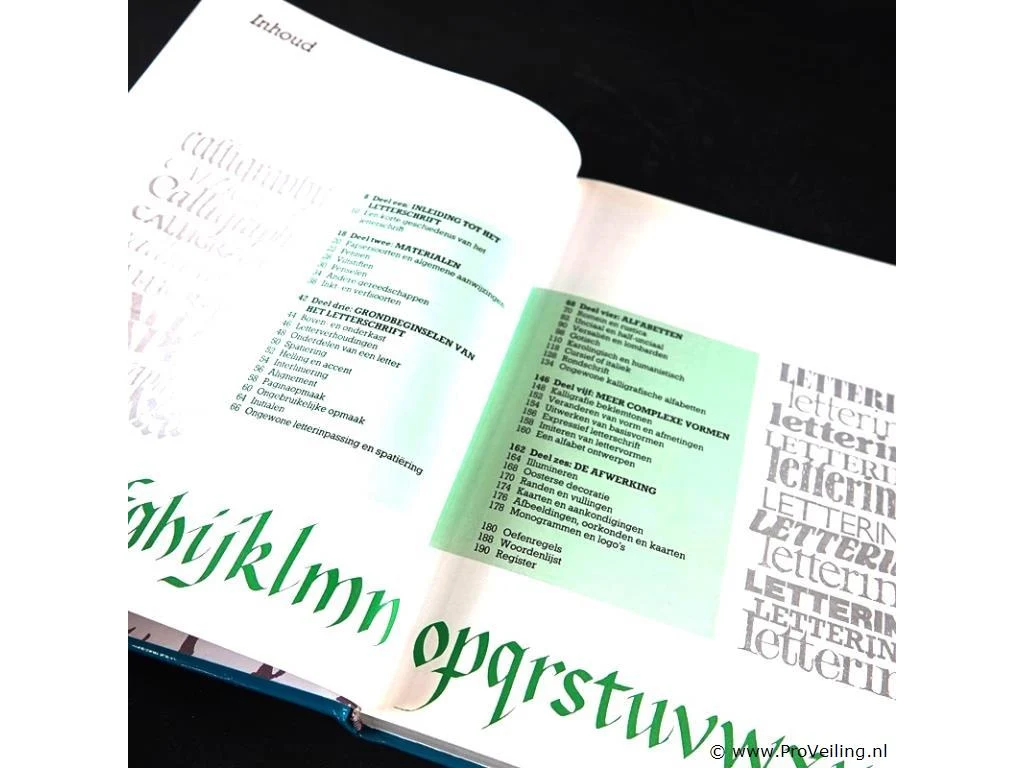 Inhoud
calligraphy
Calligraph
CALLIGR
8 Deel een: INLEIDING TOT HET
LETTERSCHRIFT
10 Een korte geschiedenis van het
letterschrift
18 Deel twee: MATERIALEN
20 Papiersoorten en algemene aanwijzingen
22 Pennen
26 Viltstiften
30 Penselen
34 Andere gereedschappen
38 Inkt- en verfsoorten
42 Deel drie: GRONDBEGINSELEN VAN
HET LETTERSCHRIFT
44 Boven- en onderkast
46 Letterverhoudingen
48 Onderdelen van een letter
50 Spatiering
52 Helling en accent
54 Interliniering
56 Alignement
58 Paginaopmaak
60 Ongebruikelijke opmaak
64 Initialen
66 Ongewone letterinpassing en spatiëring
ghijklmn
68 Deel vier: ALFABETTEN
70 Romein en rustica
82 Unciaal en half-unciaal
90 Versalen en lombarden
98 Gotisch
110 Karolingisch en humanistisch
118 Cursief of italiek
128 Rondschrift
134 Ongewone kalligrafische alfabetten
146 Deel vijf: MEER COMPLEXE VORMEN
148 Kalligrafie beklemtonen
152 Veranderen van vorm en afmetingen
154 Uitwerken van basisvormen
156 Expressief letterschrift
158 Imiteren van lettervormen
160 Een alfabet ontwerpen
162 Deel zes: DE AFWERKING
164 Illumineren
168 Oosterse decoratie
170 Randen en vullingen
174 Kaarten en aankondigingen
176 Afbeeldingen, oorkonden en kaarten
178 Monogrammen en logo's
180 Oefenregels
188 Woordenlijst
190 Register
LETTERI
letterin
letterin
LETTERIN
letterin
LETTERIN
LETTERI
letterin
LETTERIN
LETTERIN
letterin
opqrstuvwx
© www.ProVeiling.nl